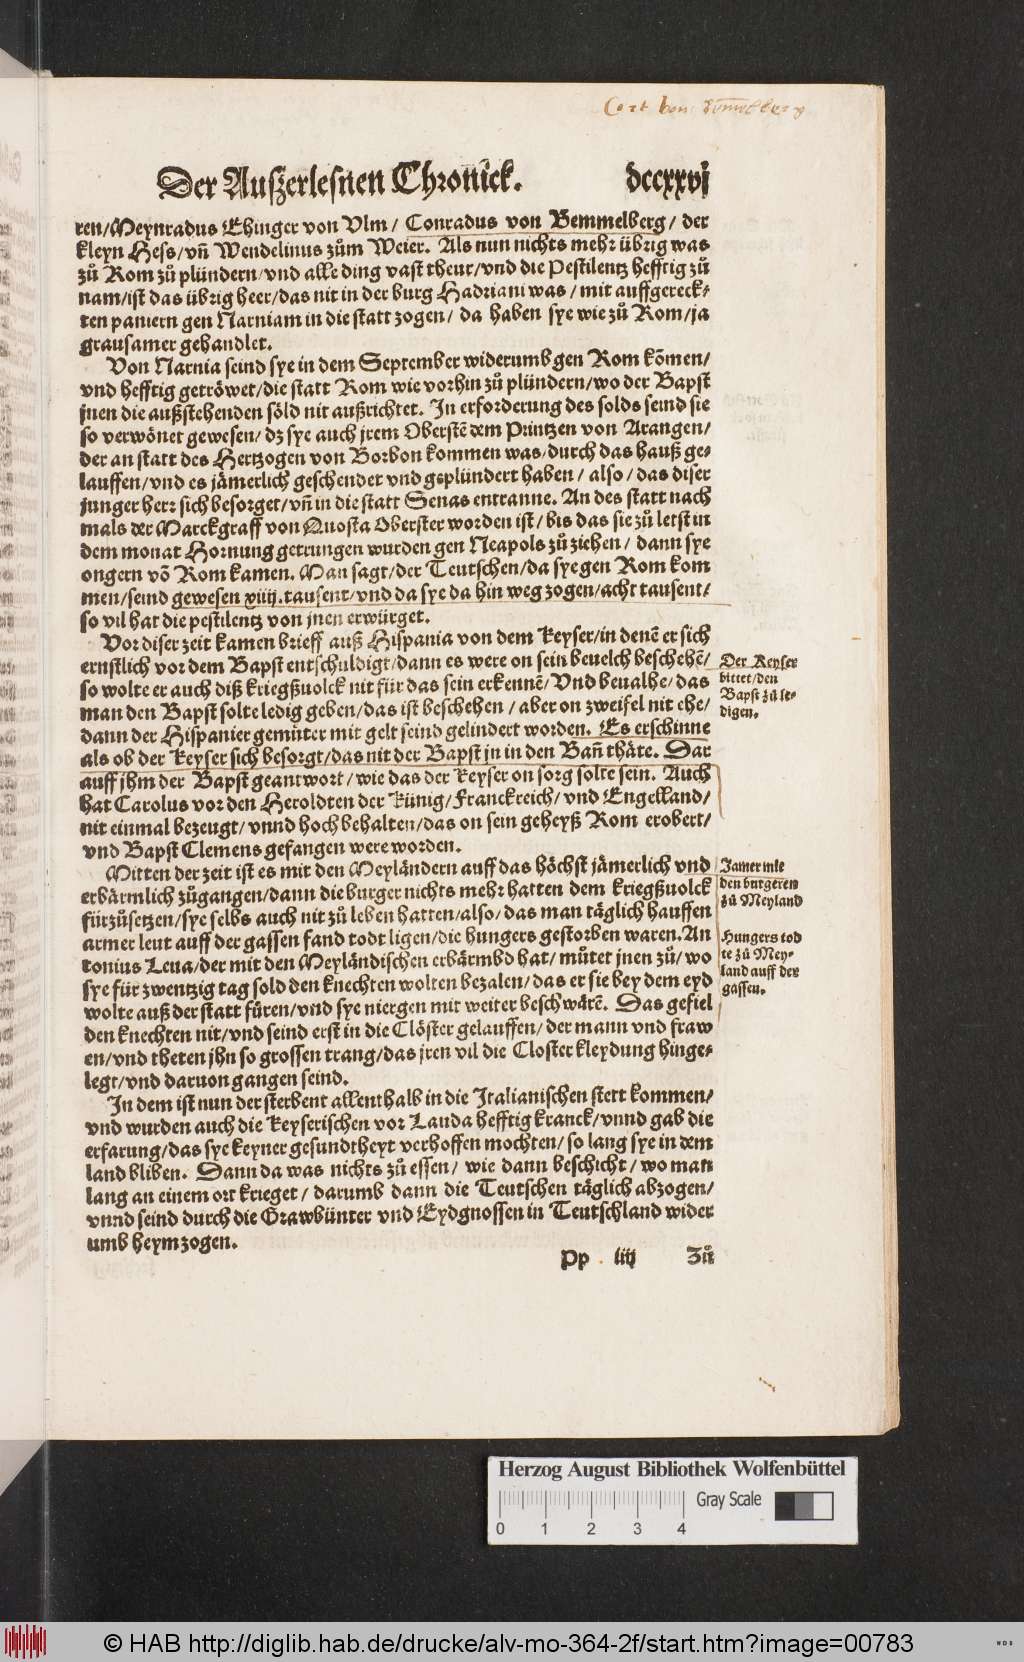 Der Außerlesnen Chronick. dccxxvj
ren/Meynradus Ehinger von Vlm/ Conradus von Bemmelberg/ der
kleyn Hess/vñ Wendelinus zům Weier. Als nun nichts mehr übrig was
zů Rom zů plündern/vnd alle ding vast theur/vnd die Pestilentz hefftig zů
nam/ist das übrig heer/das nit in der burg Hadriani was/mit auffgereck-
ten paniern gen Narniam in die statt zogen/ da haben sye wie zů Rom/ja
grausamer gehandlet.
Von Narnia seind sye in dem September widerumb gen Rom kõmen/
vnd hefftig getröwet/die statt Rom wie vorhin zů plündern/wo der Bapst
jnen die außstehenden söld nit außrichtet. In erforderung des solds seind sie
so verwönet gewesen/dz sye auch jrem Oberstẽ dem Printzen von Arangen/
der an statt des Hertzogen von Borbon kommen was/durch das hauß ge-
lauffen/vnd es jämerlich geschendet vnd geplündert haben/ also/das diser
junger herr sich besorget/vñ in die statt Senas entranne. An des statt nach
mals der Marckgraff von Quosta Oberster worden ist/ bis das sie zů letst in
dem monat Hornung getrungen wurden gen Neapols zů ziehen/ dann sye
ongern võ Rom kamen. Man sagt/der Teutschen/da sye gen Rom kom
men/seind gewesen xiiij.tausent/vnd da sye da hin weg zogen/acht tausent/
so vil hat die pestilentz von jnen erwürget.
Vor diser zeit kamen brieff auß Hispania von dem Keyser/in denẽ er sich
ernstlich vor dem Bapst entschuldigt/dann es were on sein beuelch beschehẽ/
so wolte er auch diß kriegßuolck nit für das sein erkennẽ/Vnd beualhe/das
man den Bapst solte ledig geben/das ist beschehen/ aber on zweifel nit ehe/
dann der Hispanier gemüter mit gelt seind gelindert worden. Es erschinne
als ob der Keyser sich besorgt/das nit der Bapst jn in den Bañ thäte. Dar
auff jhm der Bapst geantwort/wie das der Keyser on sorg solte sein. Auch
hat Carolus vor den Heroldten der Künig/Franckreich/vnd Engelland/
nit einmal bezeugt/vnnd hoch behalten/das on sein geheyß Rom erobert/
vnd Bapst Clemens gefangen were worden.
Der Keyser
bittet/den
Bapst zů le-
digen.
Mitten der zeit ist es mit den Meyländern auff das höchst jämerlich vnd
erbärmlich zůgangen/dann die burger nichts mehr hatten dem kriegßuolck
fürzůsetzen/sye selbs auch nit zů leben hatten/also/das man täglich hauffen
armer leut auff der gassen fand todt ligen/die hungers gestorben waren. An
tonius Leua/der mit den Meyländischen erbärmbd hat/ můtet jnen zů/wo
sye für zwentzig tag sold den knechten wolten bezalen/das er sie bey dem eyd
wolte auß der statt füren/vnd sye niergen mit weiter beschwärẽ. Das gefiel
den knechten nit/vnd seind erst in die Clöster gelauffen/der mann vnd fraw
en/vnd theten jhn so grossen trang/das jren vil die Closter kleydung hinge-
legt/vnd daruon gangen seind.
Jamer mle
den burgeren
zů Meyland
Hungers tod
te zů Mey-
land auff der
gassen.
In dem ist nun der sterbent allenthalb in die Italianischen stett kommen/
vnd wurden auch die Keyserischen vor Lauda hefftig kranck/vnnd gab die
erfarung/das sye keyner gesundtheyt verhoffen mochten/so lang sye in dem
land bliben. Dann da was nichts zů essen/ wie dann beschicht/wo man
lang an einem ort krieget/ darumb dann die Teutschen täglich abzogen/
vnnd seind durch die Grawbünter vnd Eydgnossen in Teutschland wider
umb heym zogen.
Pp iiij Zů
Herzog August Bibliothek Wolfenbüttel
Gray Scale
0 1 2 3 4
© HAB http://diglib.hab.de/drucke/alv-mo-364-2f/start.htm?image=00783